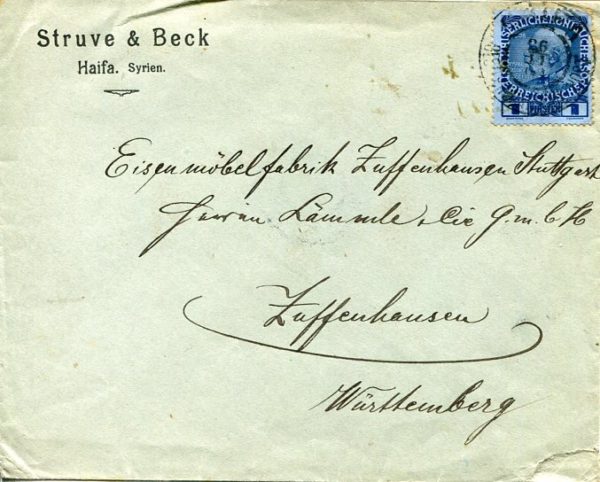 Struve & Beck
Haifa. Syrien.
KAISERLICHE KÖNIGLICHE
ÖSTERREICHISCHE POST
1 1
Eisenmöbelfabrik Zuffenhausen Stuttgart
Herren Lämmle & Cie G.m.b.H
Zuffenhausen
Württemberg